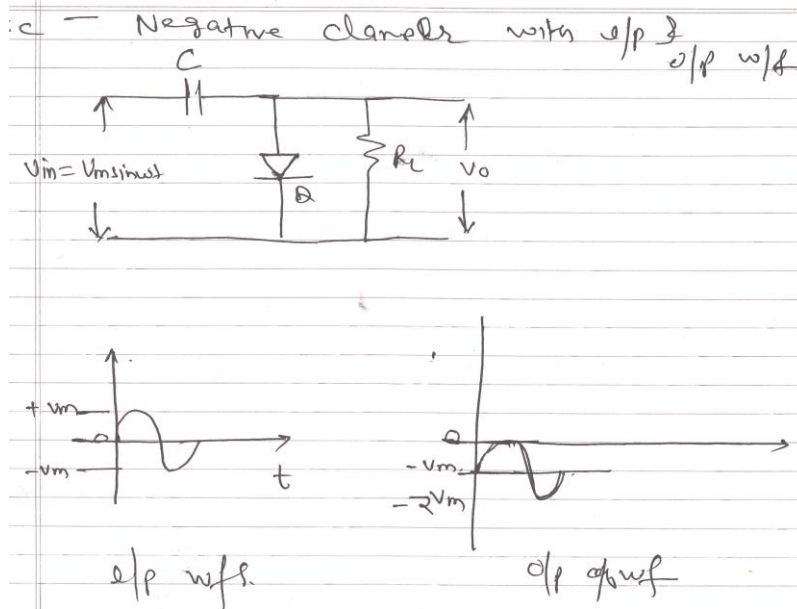 :c – Negative clamper with i/p &
o/p w/f
C
Vin = Vmsinwt
D
RL
Vo
+ Vm
0
-Vm
t
0
-Vm
-2Vm
i/p wfs.
o/p wf